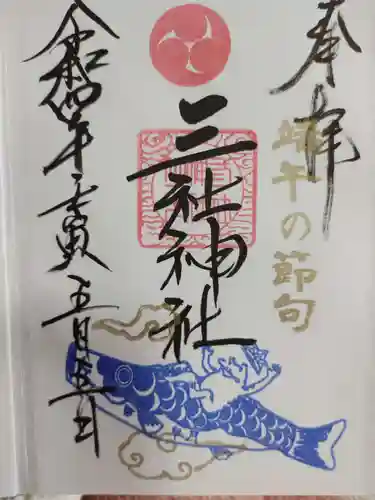 奉拝
端午の節句
三社神社
令和四年壬寅
五月五日